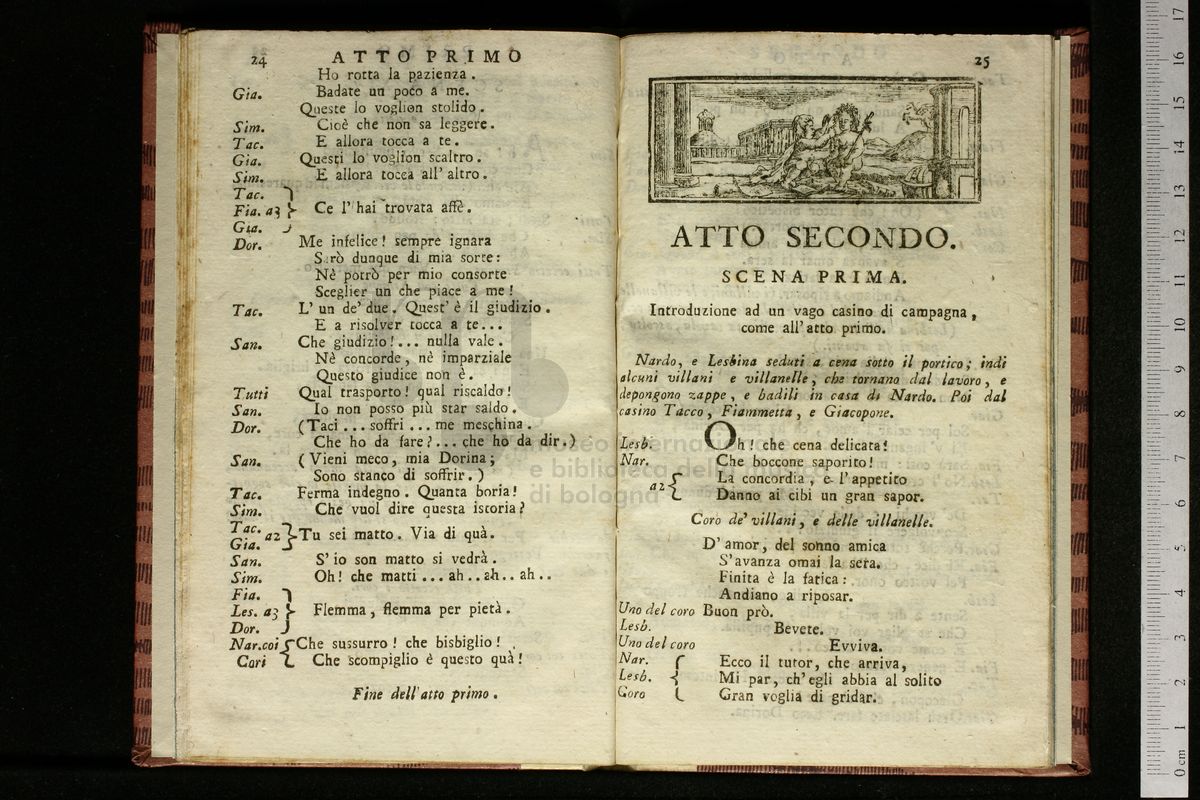 24 ATTO PRIMO
Ho rotta la pazienza.
Gia. Badate un poco a me.
Queste lo voglion stolido.
Sim. Cioè che non sa leggere.
Tac. E allora tocca a te.
Gia. Questi lo voglion scaltro.
Sim. E allora tocca all' altro.
Tac.
Fia. a3 Ce l' hai trovata affè.
Gia.
Dor. Me infelice! sempre ignara
Sarò dunque di mia sorte:
Nè potrò per mio consorte
Sceglier un che piace a me!
Tac. L' un de' due. Quest' è il giudizio.
E a risolver tocca a te...
San. Che giudizio!... nulla vale.
Nè concorde, nè imparziale
Questo giudice non è.
Tutti Qual trasporto! qual riscaldo!
San. Io non posso più star saldo.
Dor. (Taci... soffri... me meschina.
Che ho da fare?... che ho da dir.)
San. (Vieni meco, mia Dorina;
Sono stanco di soffrir.)
Tac. Ferma indegno. Quanta boria!
Sim. Che vuol dire questa istoria?
Tac. a2 Tu sei matto. Via di quà.
Gia.
San. S' io son matto si vedrà.
Sim. Oh! che matti... ah.. ah.. ah..
Fia.
Les. a3 Flemma, flemma per pietà.
Dor.
Nar.coi Che sussurro! che bisbiglio!
Cori Che scompiglio è questo quà!
Fine dell'atto primo.
25
ATTO SECONDO.
SCENA PRIMA.
Introduzione ad un vago casino di campagna,
come all'atto primo.
Nardo, e Lesbina seduti a cena sotto il portico; indi
alcuni villani e villanelle, che tornano dal lavoro, e
depongono zappe, e badili in casa di Nardo. Poi dal
casino Tacco, Fiammetta, e Giacopone.
Lesb. Oh! che cena delicata!
Nar. Che boccone saporito!
a2 La concordia, e l'appetito
Danno ai cibi un gran sapor.
Coro de' villani, e delle villanelle.
D' amor, del sonno amica
S'avanza omai la sera.
Finita è la fatica:
Andiano a riposar.
Uno del coro Buon prò.
Lesb. Bevete.
Uno del coro Evviva.
Nar. Ecco il tutor, che arriva,
Lesb. Mi par, ch'egli abbia al solito
Coro Gran voglia di gridar.
museo internazionale
e biblioteca della musica
di bologna
0 cm 1 2 3 4 5 6 7 8 9 10 11 12 13 14 15 16 17